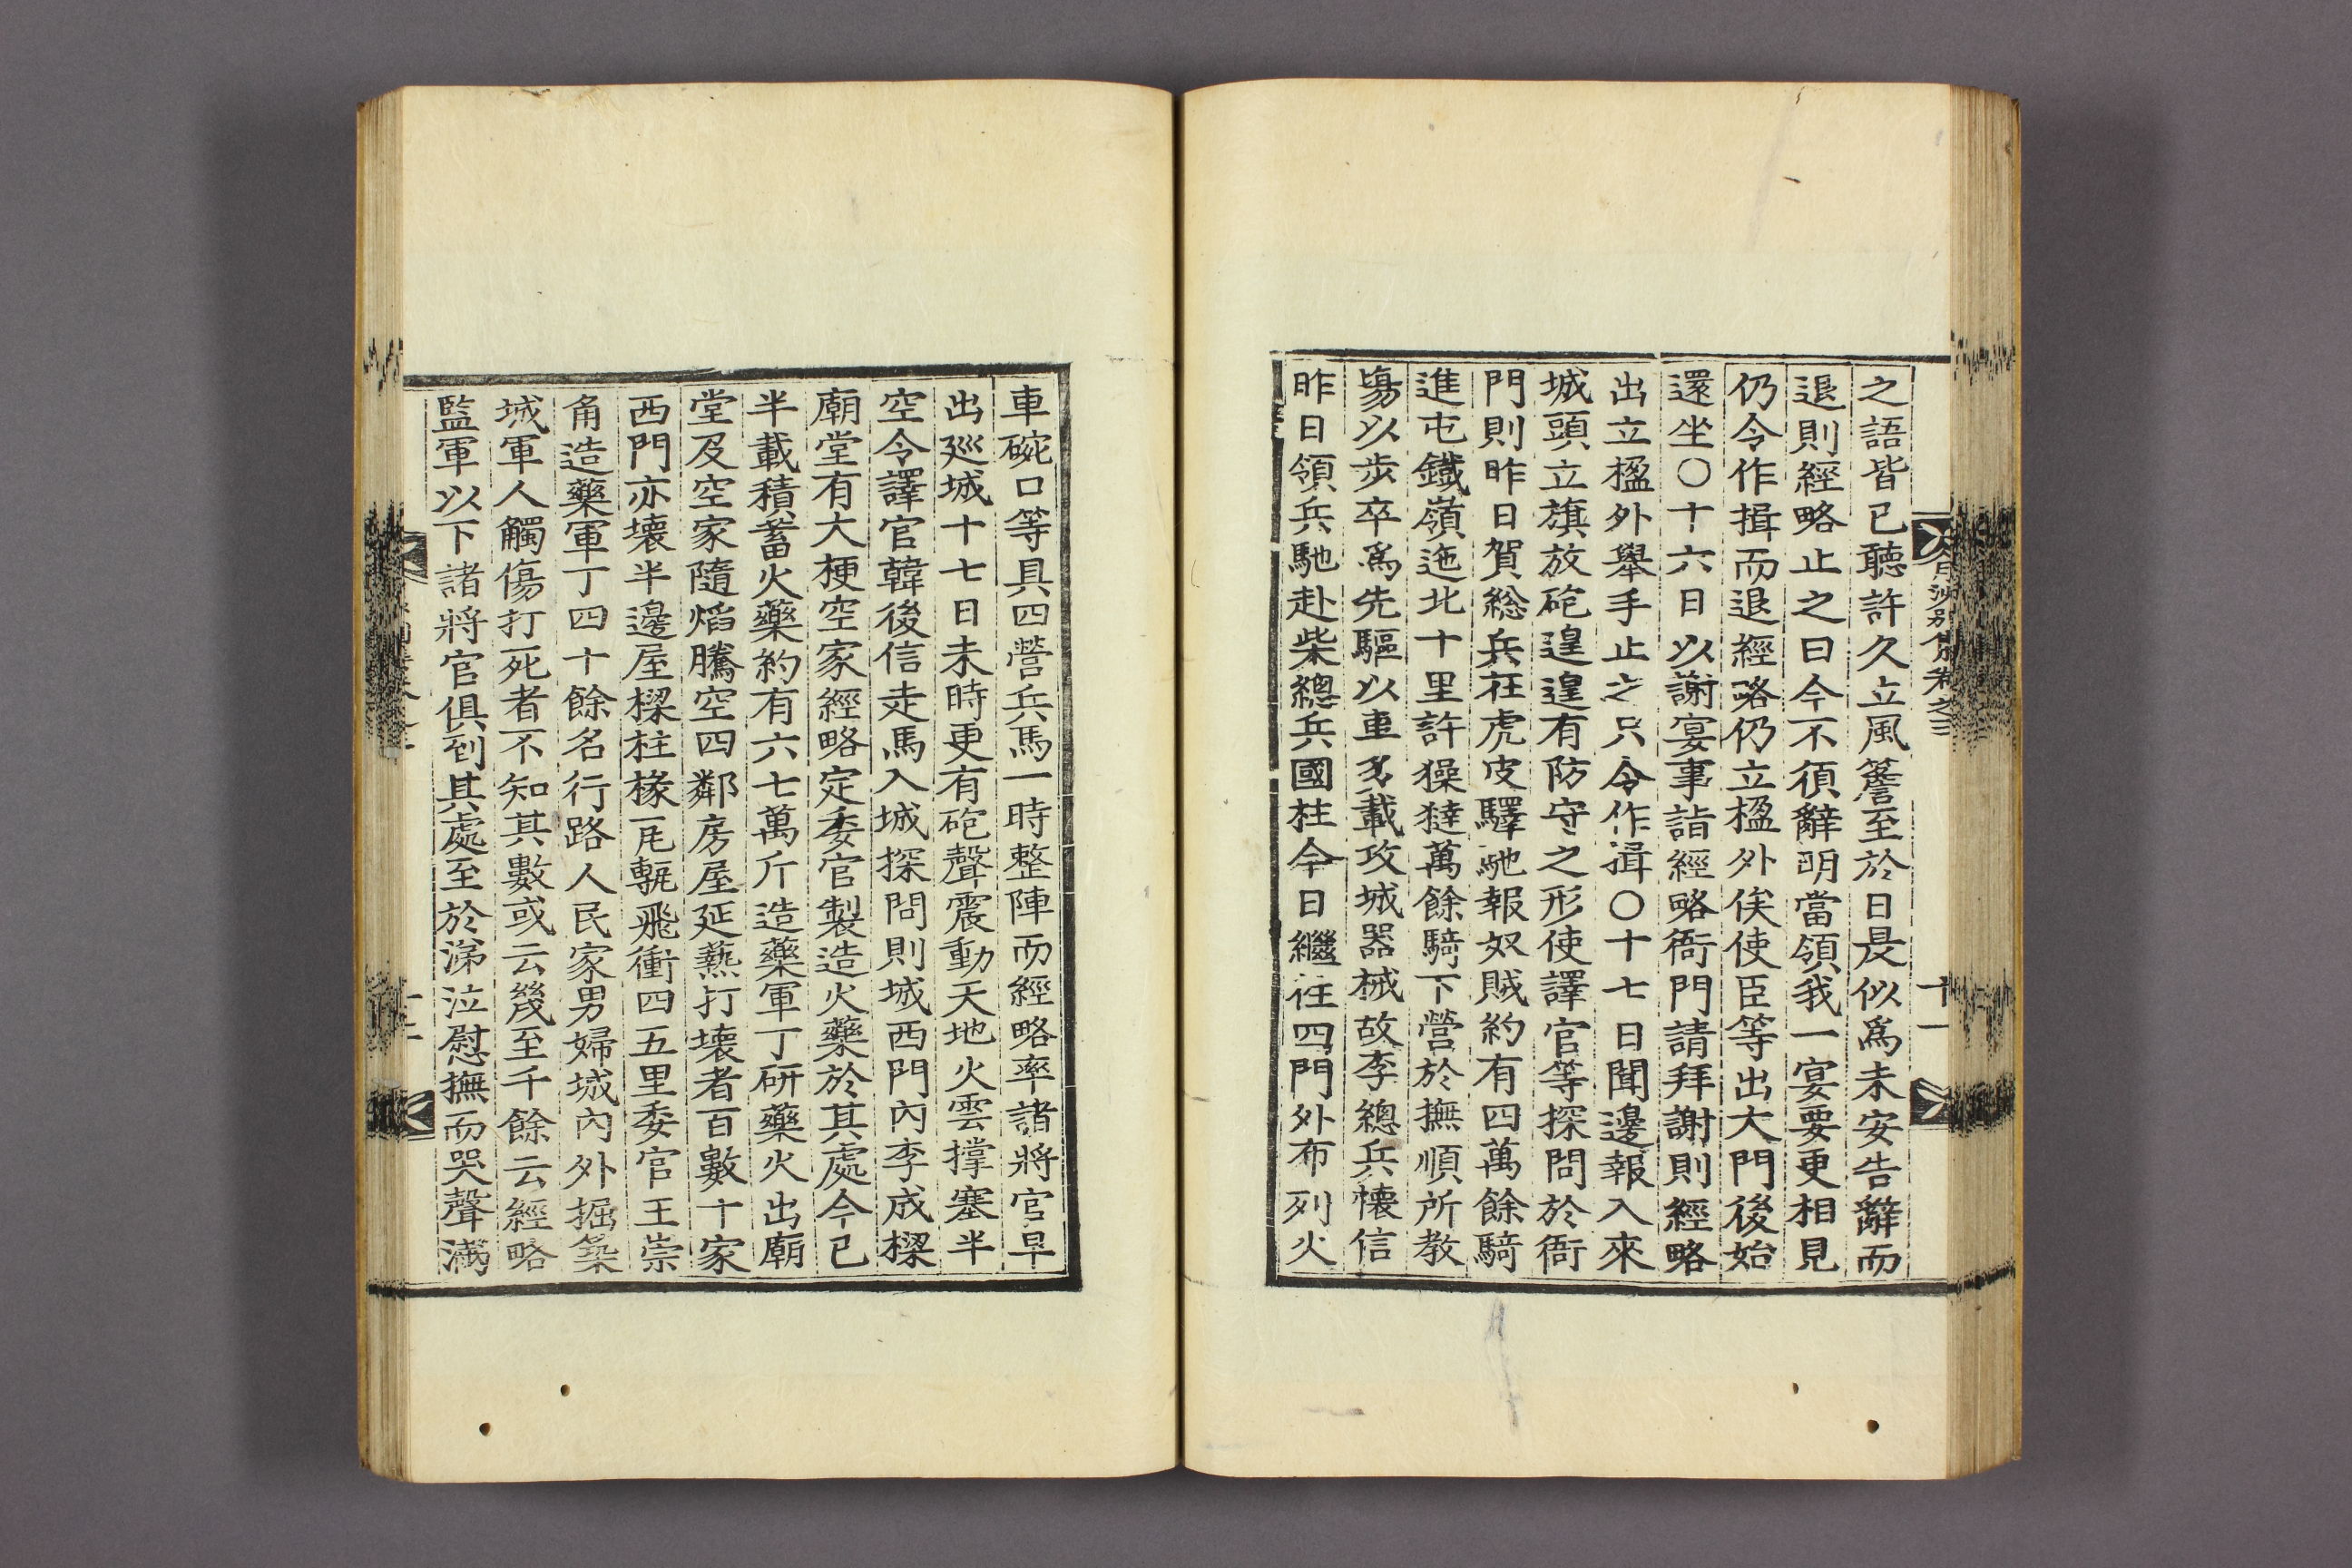 月沙別集卷之三
十一
之語皆已聽許久立風簷至於日昃似爲未安告辭而
退則經略止之曰今不須辭明當領我一宴要更相見
仍令作揖而退經略仍立楹外俟使臣等出大門後始
還坐○十六日以謝宴事詣經略衙門請拜謝則經略
出立楹外擧手止之只令作揖○十七日聞邊報入來
城頭立旗放砲遑遑有防守之形使譯官等探問於衙
門則昨日賀総兵在虎皮驛馳報奴賊約有四萬餘騎
進屯鐵嶺迤北十里許㺚㺚萬餘騎下營於撫順所敎
塲以步卒爲先驅以車多載攻城器械故李總兵懷信
昨日領兵馳赴柴總兵國柱今日繼往四門外布列火
車碗口等具四營兵馬一時整陣而經略率諸將官早
出廵城十七日未時更有砲聲震動天地火雲撑塞半
空令譯官韓後信走馬入城探問則城西門內李成樑
廟堂有大梗空家經略定委官製造火藥於其處今已
半載積蓄火藥約有六七萬斤造藥軍丁硏藥火出廟
堂及空家隨焰騰空四鄰房屋延爇打壞者百數十家
西門亦壞半邊屋樑柱椽瓦甎飛衝四五里委官王崇
角造藥軍丁四十餘名行路人民家男婦城內外掘築
城軍人觸傷打死者不知其數或云幾至千餘云經略
監軍以下諸將官俱到其處至於涕泣慰撫而哭聲滿